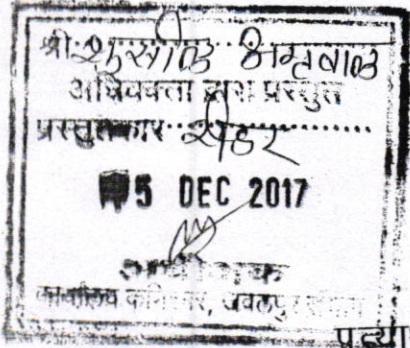 श्री सुशील अग्रवाल
अधिवक्ता द्वारा प्रस्तुत
प्रस्तुतकार रीडर
5 DEC 2017
कार्यालय कमिश्नर, जबलपुर संभाग